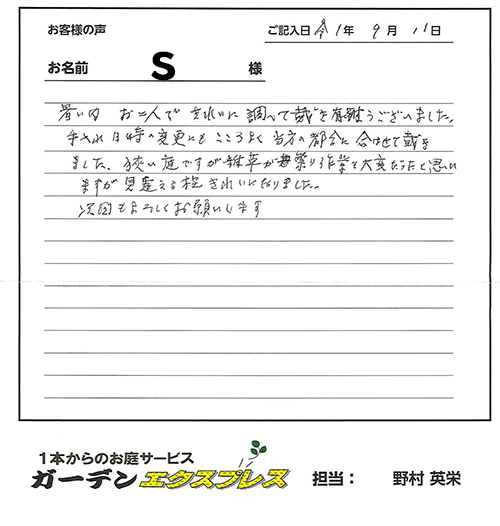 お客様の声
ご記入日 令1年 9月 11日
お名前 S 様
暑い内 お二人で きれいに 調べて戴き有難うございました。
手入れ日時の変更にも こころよく 当方の都合に 合はせて戴き
ました。狭い庭ですが雑草が 繁り作業も大変だったと思い
ますが 見違える程 きれいになりました。
次回もよろしくお願いします
1本からのお庭サービス
ガーデンエクスプレス 担当： 野村 英栄